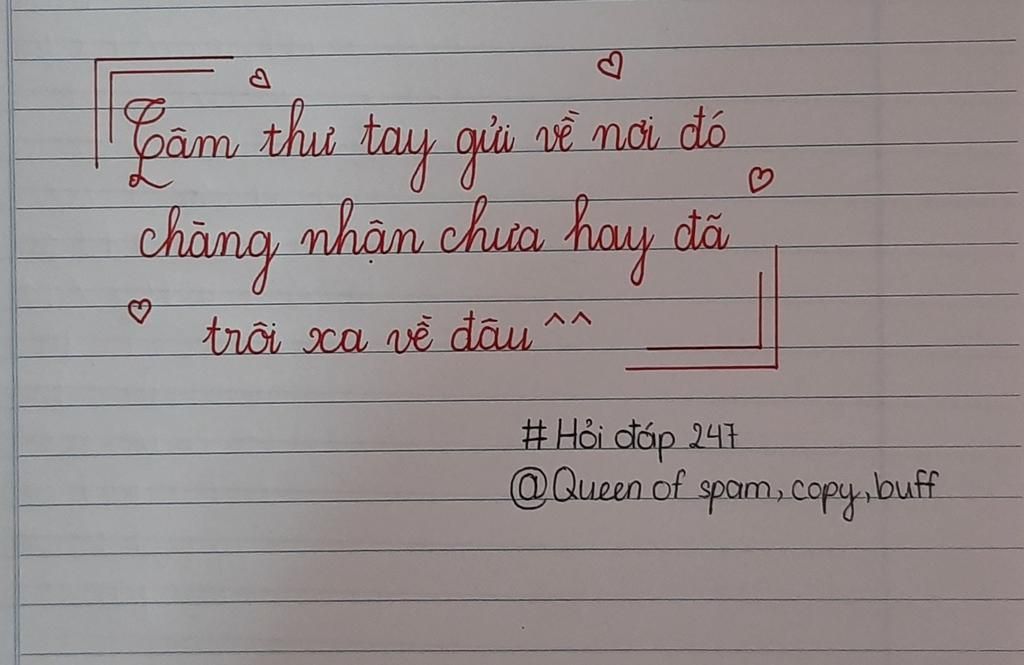 Tâm thư tay gửi về nơi đó
chàng nhận chưa hay đã
trôi xa về đâu ^^
# Hỏi đáp 247
@Queen of spam, copy, buff